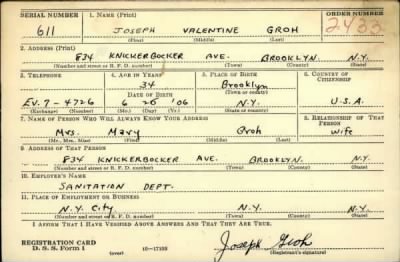 SERIAL NUMBER 1. NAME (Print) ORDER NUMBER
611 JOSEPH VALENTINE GROH 2433
(First) (Middle) (Last)
2. ADDRESS (Print)
834 KNICKERBOCKER AVE. BROOKLYN. N.Y.
(Number and street or R. F. D. number) (Town) (County) (State)
3. TELEPHONE 4. AGE IN YEARS 5. PLACE OF BIRTH 6. COUNTRY OF CITIZENSHIP
34 Brooklyn
DATE OF BIRTH (Town or county)
EV. 7-4726 6 26 '06 N.Y. U.S.A.
(Exchange) (Number) (Mo.) (Day) (Yr.) (State or country)
7. NAME OF PERSON WHO WILL ALWAYS KNOW YOUR ADDRESS 8. RELATIONSHIP OF THAT PERSON
Mrs. Mary Groh Wife
(Mr., Mrs., Miss) (First) (Middle) (Last)
9. ADDRESS OF THAT PERSON
834 KNICKERBOCKER AVE. BROOKLYN. N.Y.
(Number and street or R. F. D. number) (Town) (County) (State)
10. EMPLOYER'S NAME
SANITATION DEPT.
11. PLACE OF EMPLOYMENT OR BUSINESS
N.Y. CITY N.Y. N.Y.
(Number and street or R. F. D. number) (Town) (County) (State)
I AFFIRM THAT I HAVE VERIFIED ABOVE ANSWERS AND THAT THEY ARE TRUE.
REGISTRATION CARD
D. S. S. Form 1 (over) 16—17105 Joseph Groh
(Registrant's signature)